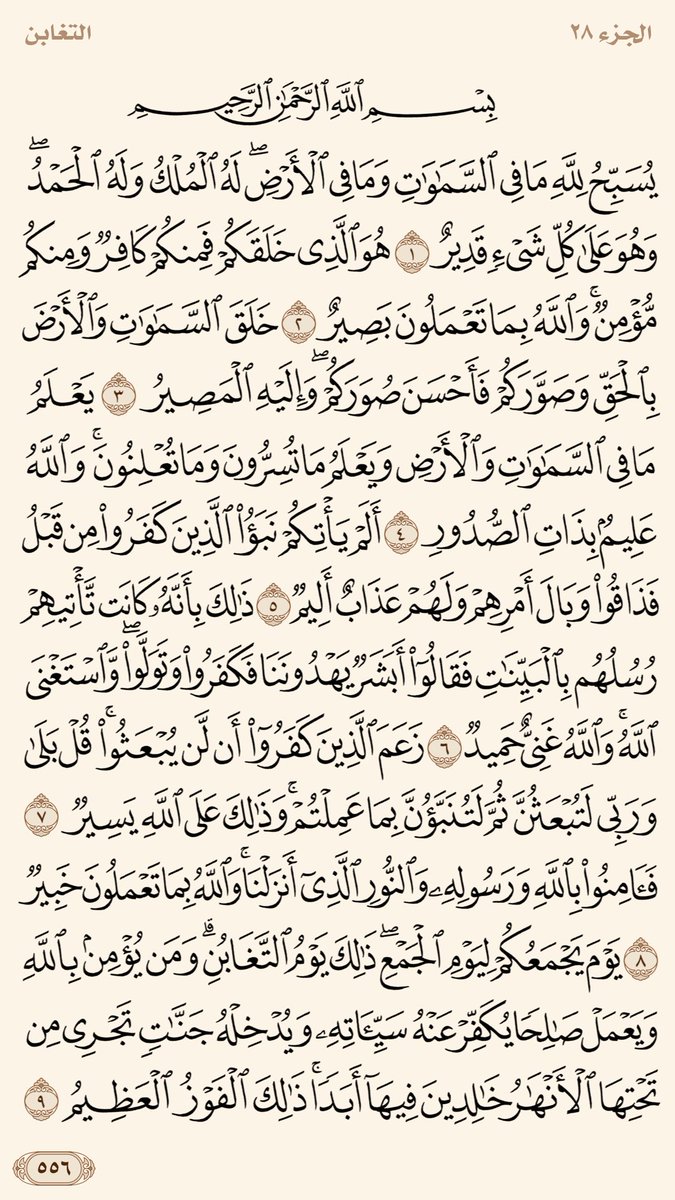 الجزء ٢٨
التغابن
بِسْمِ ٱللَّهِ ٱلرَّحْمَٰنِ ٱلرَّحِيمِ
يُسَبِّحُ لِلَّهِ مَا فِى ٱلسَّمَٰوَٰتِ وَمَا فِى ٱلْأَرْضِۖ لَهُ ٱلْمُلْكُ وَلَهُ ٱلْحَمْدُۖ
وَهُوَ عَلَىٰ كُلِّ شَىْءٍ قَدِيرٌ ١ هُوَ ٱلَّذِى خَلَقَكُمْ فَمِنكُمْ كَافِرٌ وَمِنكُم
مُّؤْمِنٌۚ وَٱللَّهُ بِمَا تَعْمَلُونَ بَصِيرٌ ٢ خَلَقَ ٱلسَّمَٰوَٰتِ وَٱلْأَرْضَ
بِٱلْحَقِّ وَصَوَّرَكُمْ فَأَحْسَنَ صُوَرَكُمْۖ وَإِلَيْهِ ٱلْمَصِيرُ ٣ يَعْلَمُ
مَا فِى ٱلسَّمَٰوَٰتِ وَٱلْأَرْضِ وَيَعْلَمُ مَا تُسِرُّونَ وَمَا تُعْلِنُونَۚ وَٱللَّهُ
عَلِيمٌۢ بِذَاتِ ٱلصُّدُورِ ٤ أَلَمْ يَأْتِكُمْ نَبَؤُا۟ ٱلَّذِينَ كَفَرُوا۟ مِن قَبْلُ
فَذَاقُوا۟ وَبَالَ أَمْرِهِمْ وَلَهُمْ عَذَابٌ أَلِيمٌ ٥ ذَٰلِكَ بِأَنَّهُۥ كَانَت تَّأْتِيهِمْ
رُسُلُهُم بِٱلْبَيِّنَٰتِ فَقَالُوٓا۟ أَبَشَرٌ يَهْدُونَنَا فَكَفَرُوا۟ وَتَوَلَّوا۟ۖ وَّٱسْتَغْنَى
ٱللَّهُۚ وَٱللَّهُ غَنِىٌّ حَمِيدٌ ٦ زَعَمَ ٱلَّذِينَ كَفَرُوٓا۟ أَن لَّن يُبْعَثُوا۟ۚ قُلْ بَلَىٰ
وَرَبِّى لَتُبْعَثُنَّ ثُمَّ لَتُنَبَّؤُنَّ بِمَا عَمِلْتُمْۚ وَذَٰلِكَ عَلَى ٱللَّهِ يَسِيرٌ ٧
فَـَٔامِنُوا۟ بِٱللَّهِ وَرَسُولِهِۦ وَٱلنُّورِ ٱلَّذِىٓ أَنزَلْنَاۚ وَٱللَّهُ بِمَا تَعْمَلُونَ خَبِيرٌ
٨ يَوْمَ يَجْمَعُكُمْ لِيَوْمِ ٱلْجَمْعِۖ ذَٰلِكَ يَوْمُ ٱلتَّغَابُنِۗ وَمَن يُؤْمِنۢ بِٱللَّهِ
وَيَعْمَلْ صَٰلِحًا يُكَفِّرْ عَنْهُ سَيِّـَٔاتِهِۦ وَيُدْخِلْهُ جَنَّٰتٍ تَجْرِى مِن
تَحْتِهَا ٱلْأَنْهَٰرُ خَٰلِدِينَ فِيهَآ أَبَدًاۚ ذَٰلِكَ ٱلْفَوْزُ ٱلْعَظِيمُ ٩
٥٥٦